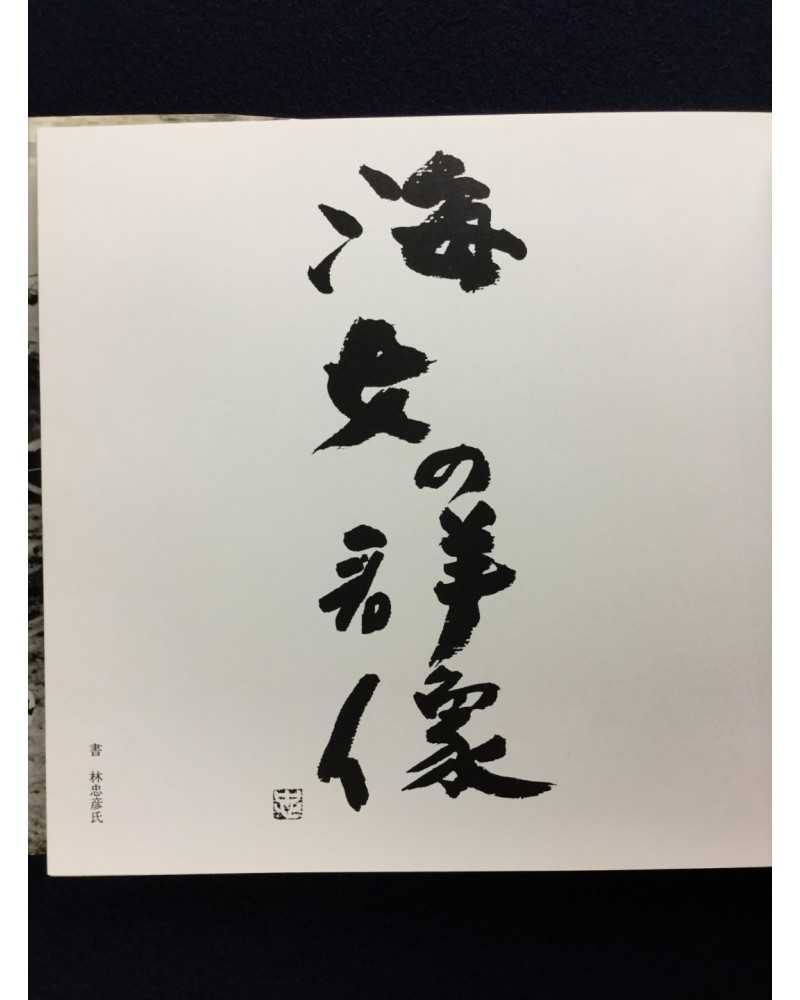 海女の群像
書 林忠彦氏
忠